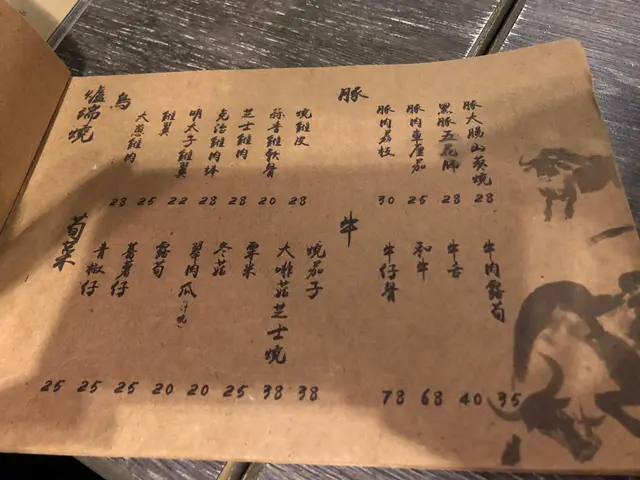 爐端燒
鳥
大蔥雞肉
雞翼
明太子雞翼
免治雞肉棒
芝士雞肉
蒜香雞軟骨
燒雞皮
28 25 22 28 28 20 28
豚
豚肉荔枝
豚肉車厘茄
黑豚五花腩
豚大腸山葵燒
30 25 28 28
菜
青椒仔
蕃薯仔
露荀
翠肉瓜
冬菇
粟米
大啡菇芝士燒
燒茄子
25 25 25 20 20 25 38 38
牛
牛仔骨
和牛
牛舌
牛肉露荀
78 68 40 35